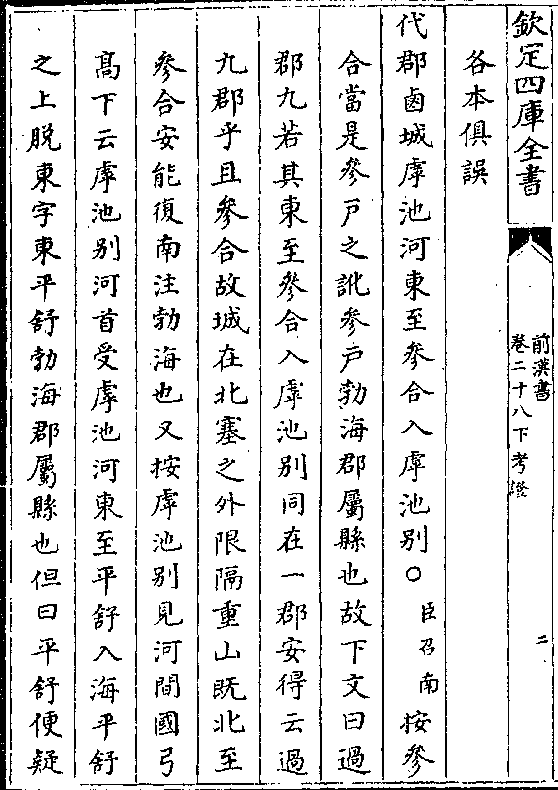 欽定四庫全書
前漢書
卷二十八下考證
二
各本俱誤
代郡鹵城虖池河東至參合入虖池别○臣召南按參
合當是參戸之訛參戸勃海郡屬縣也故下文曰過
郡九若其東至參合入虖池别同在一郡安得云過
九郡乎且參合故城在北塞之外限隔重山既北至
參合安能復南注勃海也又按虖池别見河間國弓
髙下云虖池别河首受虖池河東至平舒入海平舒
之上脱東字東平舒勃海郡屬縣也但曰平舒便疑